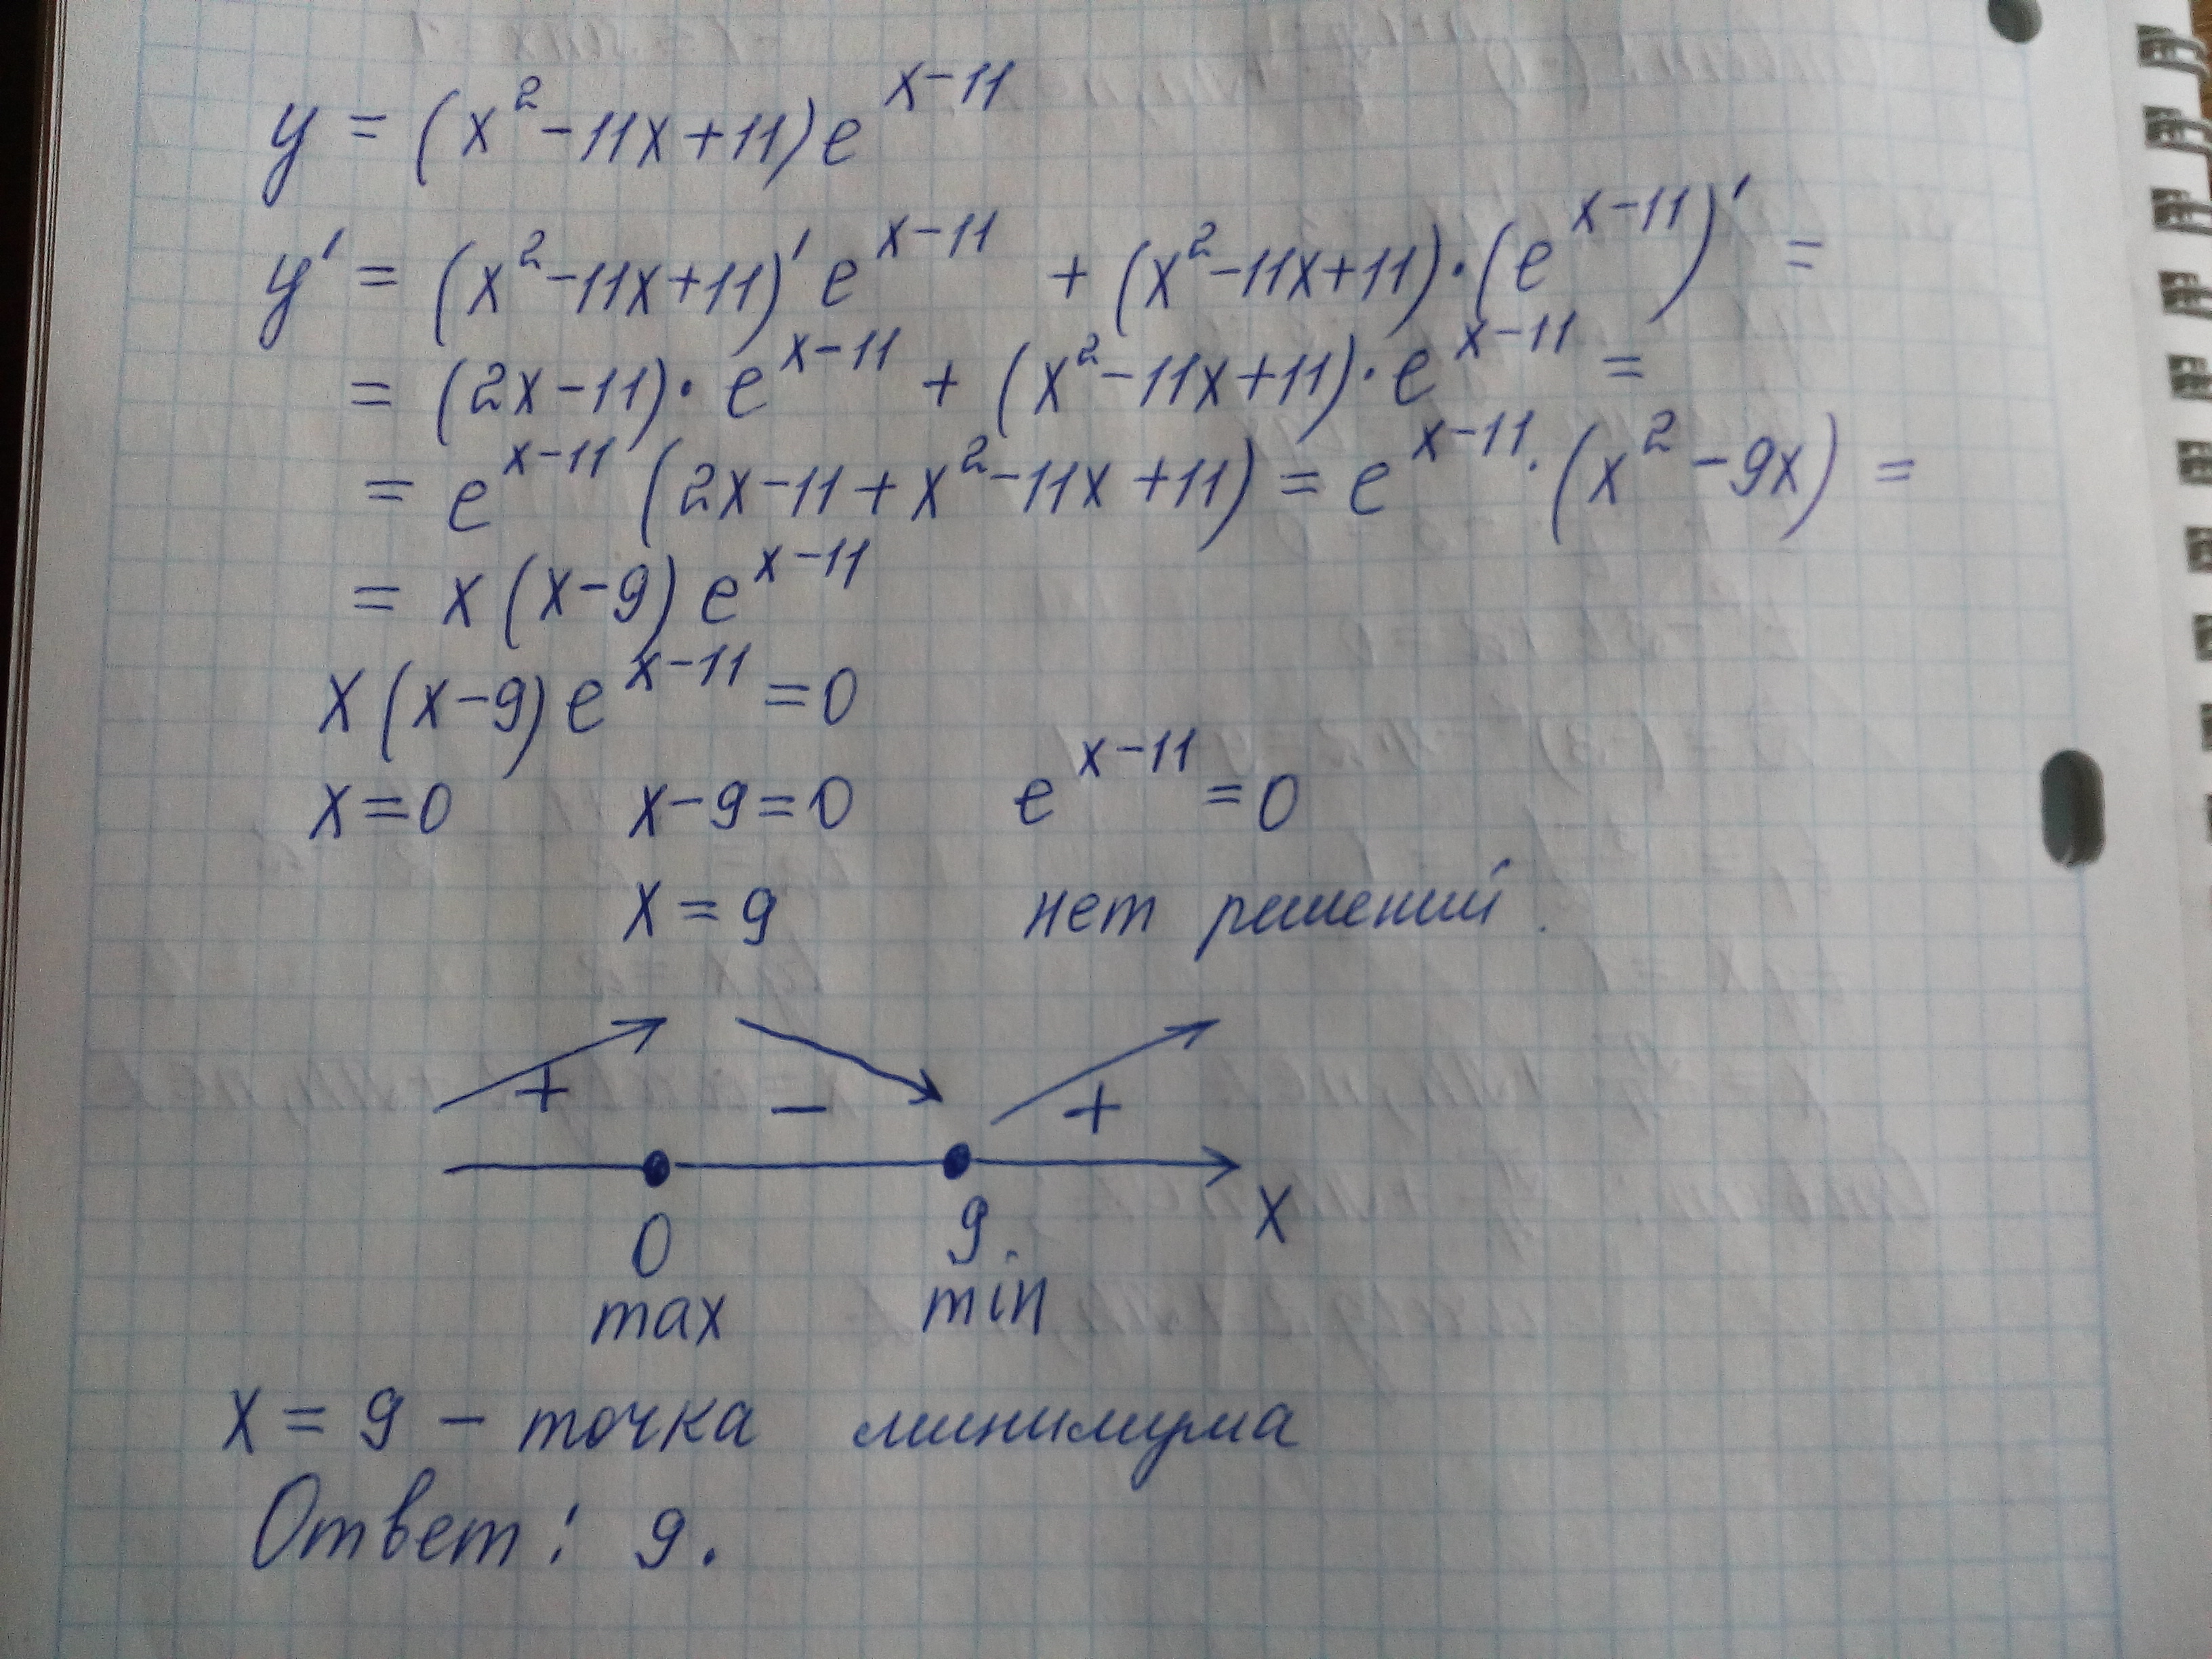 y = (x² - 11x + 11) e^(x-11)
y' = (x² - 11x + 11)' e^(x-11) + (x² - 11x + 11) · (e^(x-11))' =
= (2x - 11) · e^(x-11) + (x² - 11x + 11) · e^(x-11) =
= e^(x-11) (2x - 11 + x² - 11x + 11) = e^(x-11) · (x² - 9x) =
= x (x - 9) e^(x-11)
x (x - 9) e^(x-11) = 0
x = 0 x - 9 = 0 e^(x-11) = 0
x = 9 нет решений.
+ − +
0 9. x
max min
x = 9 – точка минимума
Ответ: 9.